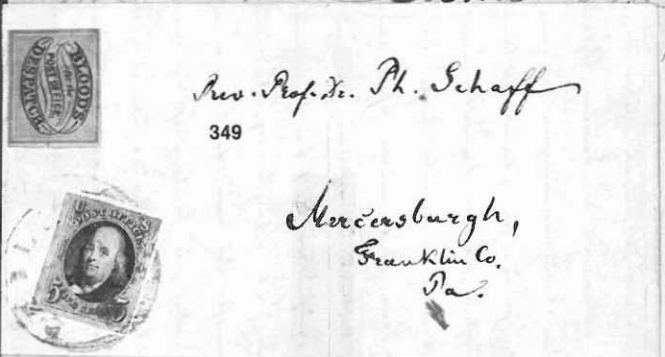 BLOOD'S
for the
POST OFFICE
DESPATCH
Rev. Prof. Dr. Ph. Schaff
349
POST OFFICE
5 5
Mercersburgh,
Franklin Co.
Pa.